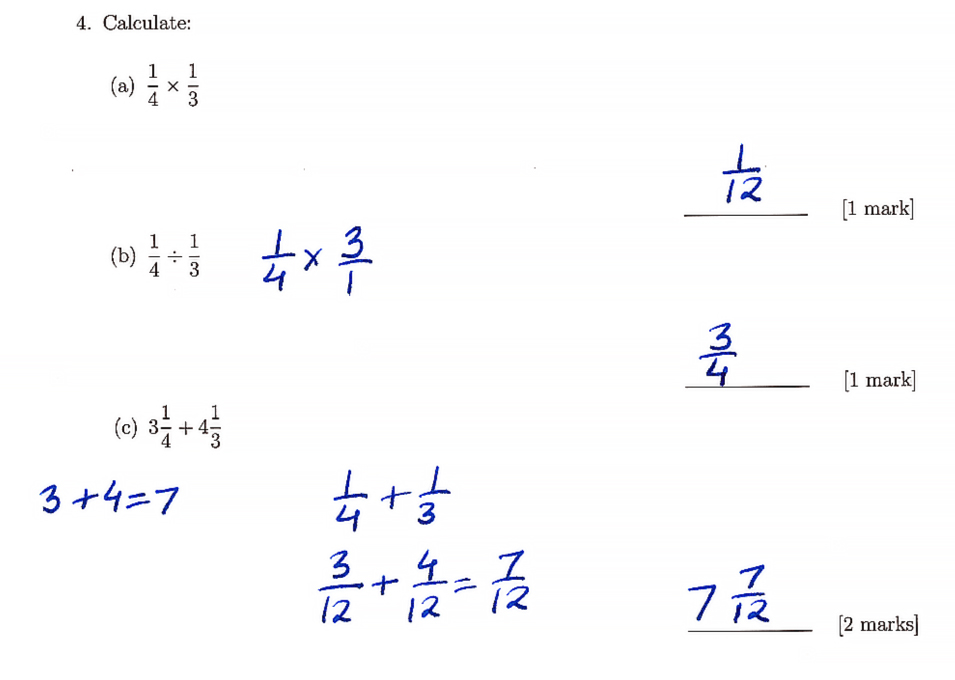 4. Calculate:
(a) 1/4 × 1/3
1/12 [1 mark]
(b) 1/4 ÷ 1/3 1/4 × 3/1
3/4 [1 mark]
(c) 3 1/4 + 4 1/3
3 + 4 = 7 1/4 + 1/3
3/12 + 4/12 = 7/12
7 7/12 [2 marks]